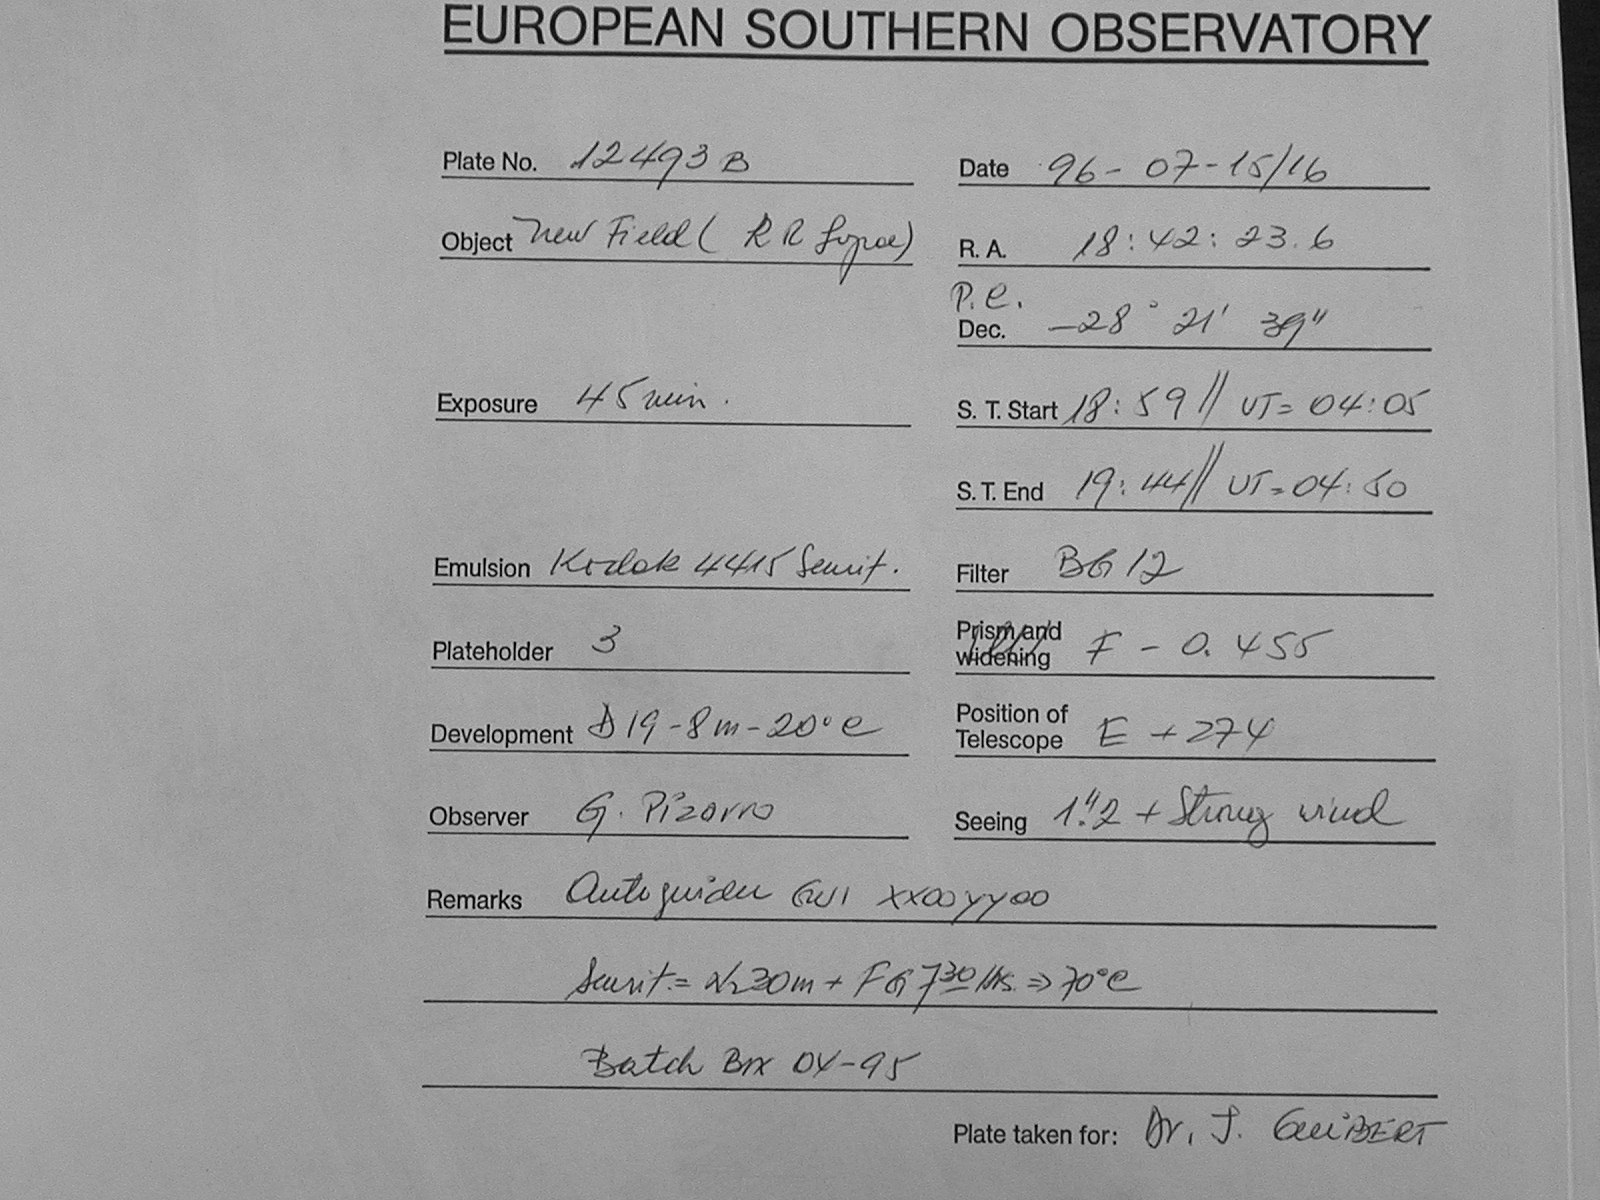 EUROPEAN SOUTHERN OBSERVATORY
Plate No. 12493 B
Date 96-07-15/16
Object New Field ( RR Lyrae)
R. A. 18:42:23.6
P.e.
Dec. -28° 21' 39"
Exposure 45 min.
S. T. Start 18:59 // UT= 04:05
S. T. End 19:44 // UT= 04:50
Emulsion Kodak 4415 Sensit.
Filter BG 12
Plateholder 3
Prism and
widening F - 0.455
Development D 19 - 8m - 20°C
Position of
Telescope E +274
Observer G. Pizarro
Seeing 1".2 + Strong wind
Remarks Autoguider GW1 XX00YY00
Sensit.= N2 30m + FG 7 30 Hrs. ⇒ 70°C
Batch Box 04-95
Plate taken for: Dr. J. GUIBERT